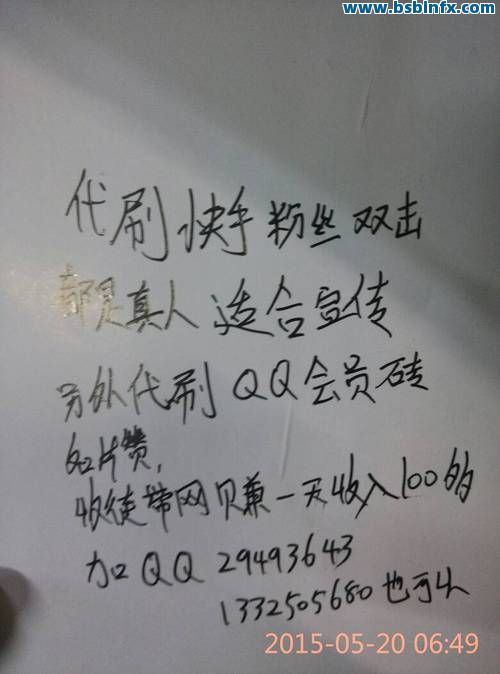 www.bsblnfx.com
代刷快手粉丝双击
都是真人 适合宣传
另外代刷QQ会员砖
名片赞,
收徒带网贝兼一天收入100多
加QQ 29493643
1332505680也可以
2015-05-20 06:49